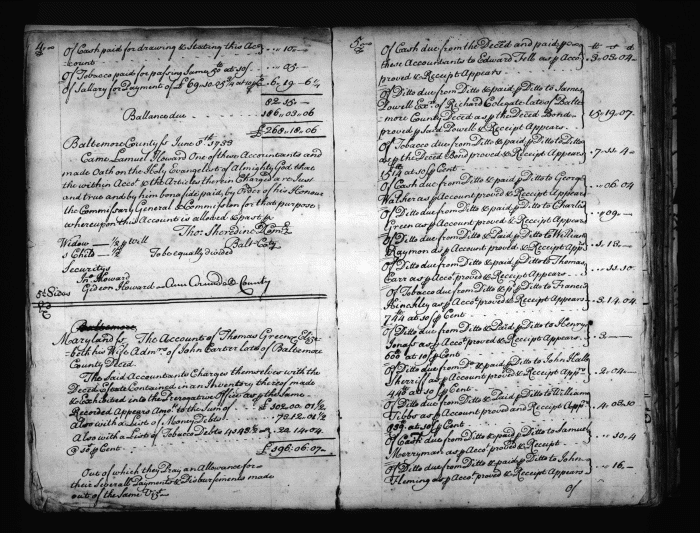 of Cash paid for drawing & Stating this Ac-
count - - 10 -
of Tobacco paid for passing Same
of Sallary for Payment of
82. 15
Ballance due - 186. 03. 06
£ 268. 18. 06
Baltemore County ss June 5th 1733
Came Samuel Howard One of the w Accountants and
made Oath on the Holy Evangelist of Almighty God that
the within Acco. & the Articles therein Charged are Just
and true and by him bonafide paid, by Order of his Honour
the Commissary General & Commission for that purpose
whereupon this Account is allowed & past p
Tho: Sheredine Com.
Balt Coty
Widow - 1/3 p Will
5 Chilo -
To be equally divided
Securitys
Jno. Howard
Gideon Howard - Ann Arundell County
5 t Sides
Maryland ss. The Account of Thomas Greene Eliza-
beth his Wife Admrs. of John Carter late of Baltemore
County Deced.
The Said Accountants Charges themselves with the
Deced. Estate Contained in an Inventory thereof made
& Exhibited into the Prerogative Office as p the Same
Recorded Appears Amo. to the Sum of £ 302. 00. 01 1/2
Also with a List of Money Debts 72. 12. 01 1/2
Also with a List of Tobacco Debts
@ 10/ p Cent
£ 396. 06. 07
Out of which they Pray an Allowance for
their Severall Payments & Disbursements made
out of the Same Vizt.
5
of Cash due from the Deced. and paid p
these Accountants to Edward Fell as p Acco.
proved & Receipt Appears 3. 03. 04
of Ditto due from Ditto & paid p Ditto to James
Powell Exr. of Richard Colegate late of Balte-
more County Deced. as p the Deced. Bond
proved p Sara Powell & Receipt Appears 15. 19. 07
of Tobacco due from Ditto & paid p Ditto to Ditto
as p the Deced. Bond proved & Receipt Appears 7. 11. 4
1514 at 10/ p Cent
of Cash due from Ditto & paid p Ditto to George
Walker as p Account proved & Receipt Appears - 06. 04
of Ditto due from Ditto & paid p Ditto to Charles
Green as p Account proved & Receipt Appears - 09 -
of Ditto due from Ditto & Paid p Ditto to William
Raymon as p Account proved & Receipt Apprs. 1. 18 -
of Ditto due from Ditto & paid p Ditto to Thomas
Carr as p Acco. proved & Receipt Appears - 11. 10
of Tobacco due from Ditto & paid p Ditto to Francis
Hinckley as p Acco. proved & Receipt Appears 3. 14. 04
744 at 10/ p Cent
of Ditto due from Ditto & Paid p Ditto to Henry
Jones as p Acco. proved & Receipt Appears 3 -
600 at 10/ p Cent
of Ditto due from Do. & paid p Ditto to John Hall
Sherriff as p Account proved & Receipt App. 2. 04 -
440 at 10/ p Cent
of Ditto due from Ditto & Paid p Ditto to William
Tibbs as p Account proved and Receipt App. 4. 03. 10
at 10/ p Cent
of Cash due from Ditto & paid p Ditto to Samuel
Merryman as p Acco. proved & Receipt - 10. 4
of Ditto due from Ditto & paid p Ditto to John
Fleming as p Acco. proved & Receipt Appears - 16 -
of